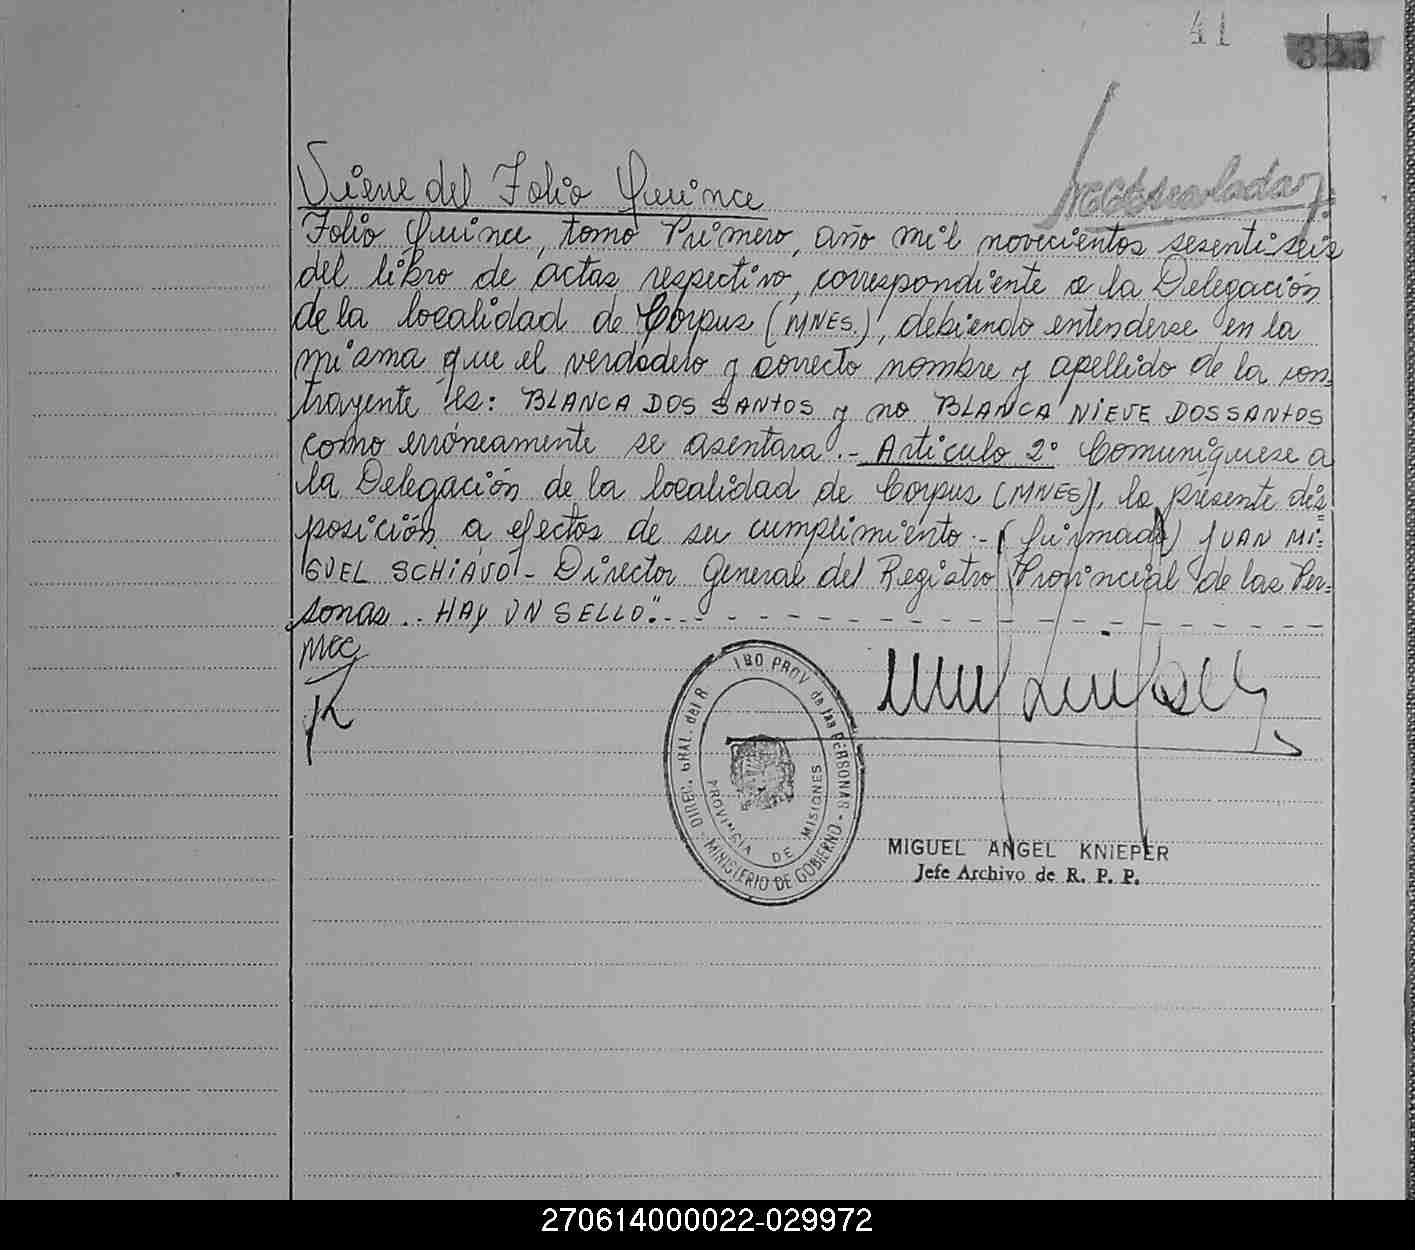 41
325
Viene del Folio Quince
Folio Quince, tomo Primero, año mil novecientos sesentiseis
del libro de actas respectivo, correspondiente a la Delegación
de la localidad de Corpus (MNES.), debiendo entenderse en la
misma que el verdadero y correcto nombre y apellido de la con
trayente es: BLANCA DOS SANTOS y no BLANCA NIEVE DOS SANTOS
como erróneamente se asentara.- Artículo 2° Comuníquese a
la Delegación de la localidad de Corpus (MNES), la presente dis
posición a efectos de su cumplimiento.- (firmado) JUAN MI=
GUEL SCHIAVO - Director General del Registro Provincial de las Per=
sonas... HAY UN SELLO".
MCC
DIREC. GRAL. del R TRO PROV de las PERSONAS - MINISTERIO DE GOBIERNO -
PROVINCIA DE MISIONES
MIGUEL ANGEL KNIEPER
Jefe Archivo de R. P. P.
270614000022-029972